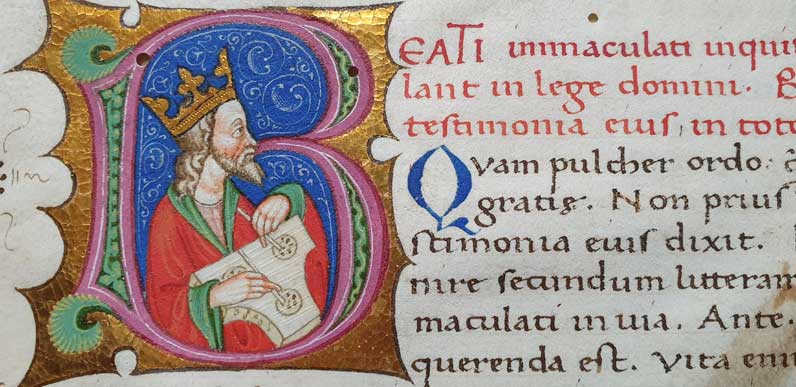 BEATI immaculati inqui
lant in lege domini.
testimonia eius, in toto
Quam pulcher ordo.
gratis. Non prius
stimonia eius dixit.
nire secundum litteram
maculati in uia. Ante.
querenda est. Vita eni